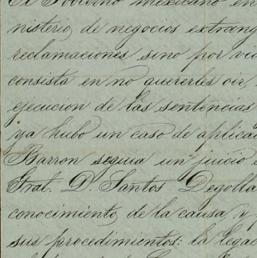 El Gobierno mexicano en
nisterio de negocios extrang
reclamaciones sino por vi
consista en no quererles oir,
ejecucion de las sentencias
ya hubo un caso de aplica
Barron seguia un juicio
Gral. D. Santos Degolla
conocimiento de la causa, y
sus procedimientos: la lega